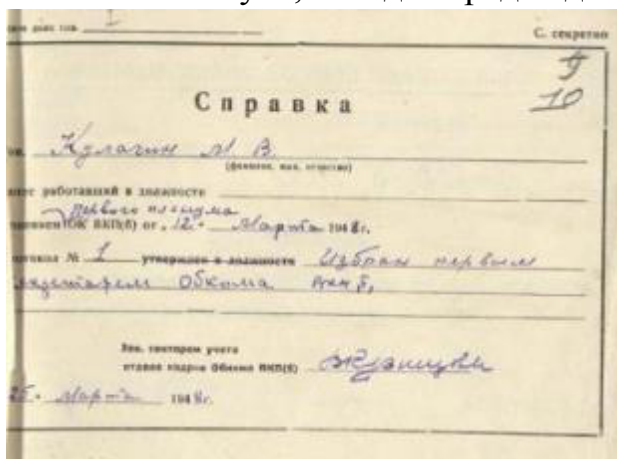 I
С. секретно
9
10
Справка
Кулагин М. В.
(фамилия, имя, отчество)
работавший в должности
первого пленума
ОК ВКП(б) от „12" Марта 1948г.
№ 1 утвержден в должности Избран первым
секретарем Обкома
Зав. сектором учета
отдела кадров Обкома ВКП(б)
25" Марта 1948г.